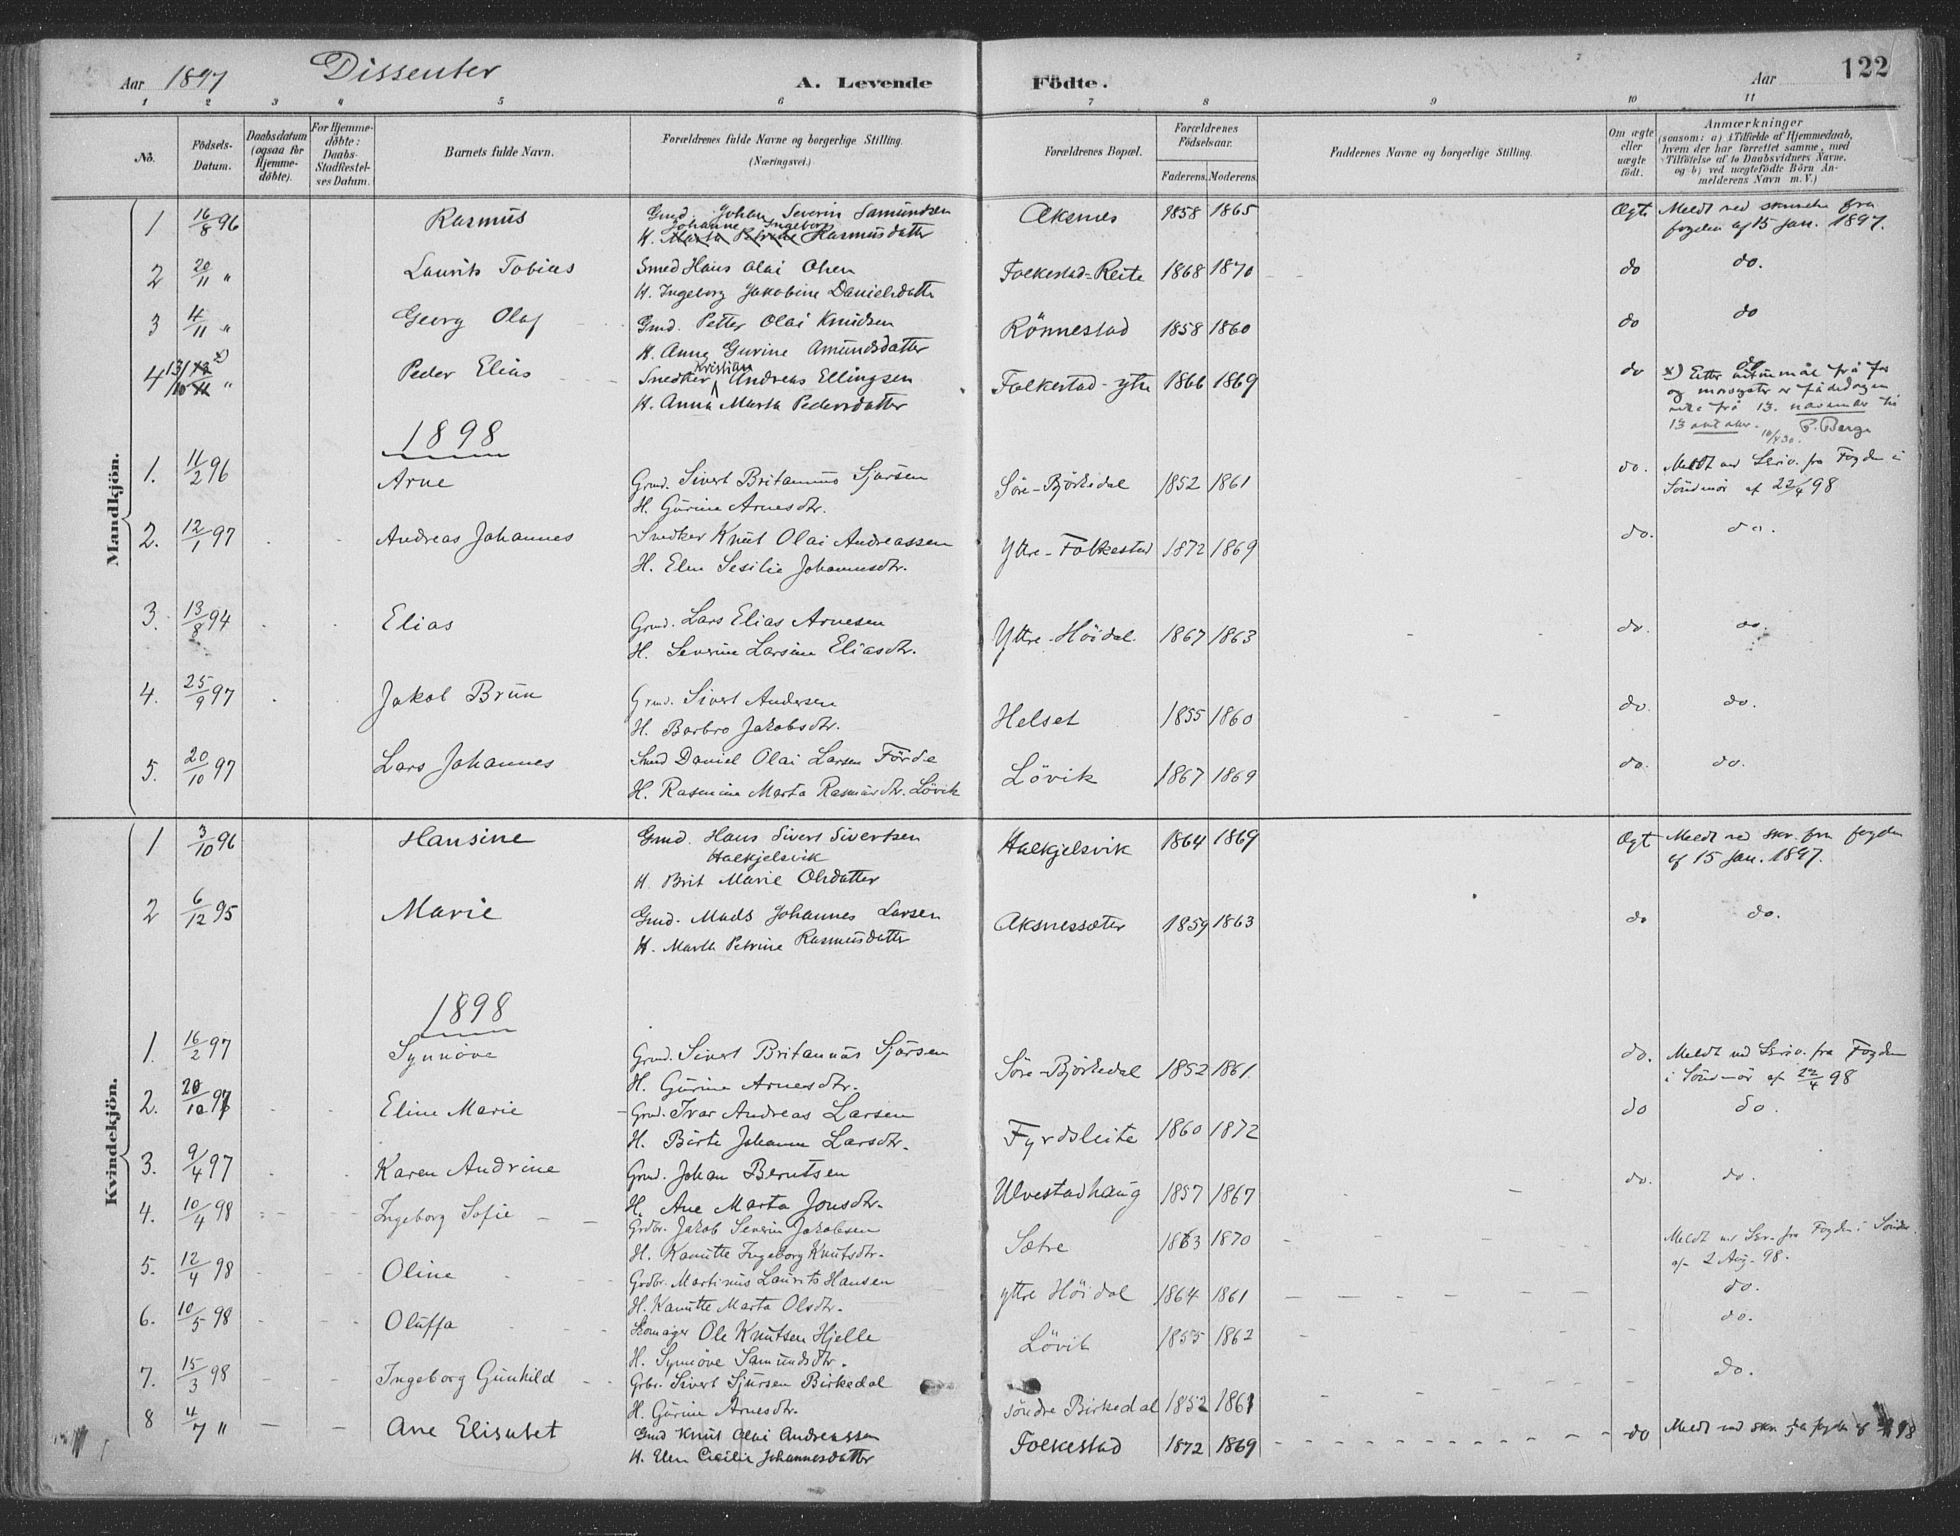 Aar 1897 Dissenter A. Levende Födte. Aar 122
1 2 3 4 5 6 7 8 9 10 11
No. Födsels-Datum. Daabsdatum (ogsaa for Hjemme-döbte). For Hjemme-döbte: Daabs-Stadfæstel-ses Datum. Barnets fulde Navn. Forældrenes fulde Navne og borgerlige Stilling. (Næringsvei.) Forældrenes Bopæl. Forældrenes Födselsaar. Faderens. Moderens. Faddernes Navne og borgerlige Stilling. Om ægte eller uægte födt. Anmærkninger (saasom: a) i Tilfælde af Hjemmedaab, hvem der har forrettet samme, med Tilföielse af to Daabsvidners Navne, og b) ved uægtefödte Börn Anmelderens Navn m. V.)
Mandkjön.
1 16/8 96 Rasmus Gmd. Johan Severin Samuntsen Aksnes 1858 1865 Ægte Meldt ved skrivelse fra
Johanne Ingeborg
H. Marta Petrine Rasmusdatter fogden af 15 Jan. 1897.
2 20/11 " Laurits Tobias Smed Hans Olai Olsen Folkestad-Reite 1868 1870 do do.
H. Ingeborg Jakobine Danielsdatter
3 4/11 " Georg Olaf Gmd. Petter Olai Knudsen Rönnestad 1858 1860 do do
H. Anne Gurine Amundsdatter
4 13/10 13/11 x) " Peder Elias Snedker Kristian Andreas Ellingsen Folkestad-ytre 1866 1869 do x) Etter frå far
H. Anna Marta Pedersdatter og er fødedagen
retta frå 13. november til
13 oktober. P. Berge
10/4 30.
1898
1. 11/2 96 Arne Grmd. Sivert Britannus Sjursen Söre-Björkedal 1852 1861 do. Meldt ved Skriv. fra Fogden i
H. Gürine Arnesdtr. Söndmör af 22/4 98
2. 12/1 97 Andreas Johannes Snedker Knut Olai Andreassen Yttre-Folkestad 1872 1869 do. do.
H. Elen Sesilie Johannesdtr.
3. 13/8 94 Elias Grmd. Lars Elias Arnesen Yttre-Höidal. 1867 1863 do. do.
H. Severine Larsine Eliasdtr.
4. 25/9 97 Jakob Brün Grmd. Sivert Andersen Helset 1855 1860 do. do.
H. Barbro Jakobsdtr.
5. 20/10 97 Lars Johannes Smd Daniel Olai Larsen Förde Lövik 1867 1869 do. do.
H. Rasmine Marta Rasmusdtr. Lövik
Kvindekjön.
1 3/10 96 Hansine Gmd. Hans Sivert Sivertsen Halkjelsvik 1864 1869 Ægt Meldt ved skr. fra fogden
Halkjelsvik af 15 Jan. 1897.
H. Brit Marie Olsdatter
2 6/12 95 Marie Gmd. Mads Johannes Larsen Aksnessæter 1859 1863 do do.
H. Marta Petrine Rasmusdatter
1898
1. 16/2 97 Synnöve Grmd. Sivert Britannüs Sjürsen Söre-Björkedal 1852 1861. do. Meldt ved Skriv. fra Fogden
H. Gürine Arnesdtr. i Söndmör af 22/4 98
2. 20/10 97 Eline Marie Grmd. Ivar Andreas Larsen Fyrdsleite 1860 1872 do do.
H. Birte Johanne Larsdtr.
3. 9/4 97 Karen Andrine Grmd. Johan Berntsen Ulvestadhaug 1857 1867 do. do.
H. Ane Marta Jonsdtr.
4. 10/4 98 Ingeborg Sofie Grdbr. Jakob Severin Jakobsen Sætre 1863 1870 Meldt ved Skr. fra Fogden i Söndm.
H. Kanutte Ingeborg Knutsdtr. af 2 Aug. 98.
5. 12/4 98 Oline Grdbr. Martinus Laurits Hansen yttre Höidal 1864 1861 do.
H. Kanutte Marta Olsdtr.
6. 10/5 98 Oluffa Skomager Ole Knutsen Hjelle Lövik 1855 1862 do.
H. Synnöve Samundsdtr.
7. 15/3 98 Ingeborg Gunhild Grbr. Sivert Sjursen Birkedal söndre Birkedal 1852 1861 do.
H. Gürine Arnesdtr.
8 4/7 " Ane Elisabet Gmd Knut Olai Andreassen Folkestad 1872 1869 do Meldt ved skr. fra fogden af 98
H. Elen Cicilie Johannesdatter